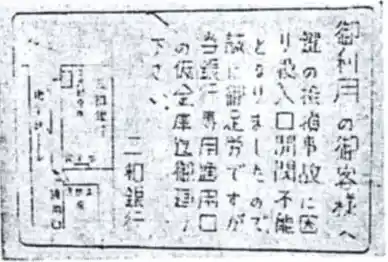 御利用の御客様へ
の 事故に因
り投入口開閉不能
となりましたので、
誠に御足労ですが
当銀行専用通用口
の仮金庫迄御廻り
下さい。
三和銀行